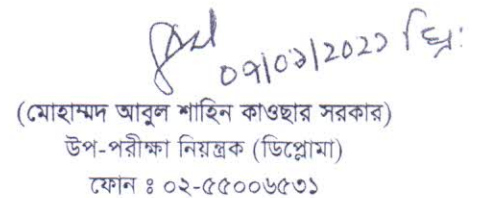 (মোহাম্মদ আবুল শাহিন কাওছার সরকার)
উপ-পরীক্ষা নিয়ন্ত্রক (ডিপ্লোমা)
ফোন ঃ ০২-৫৫০০৬৫৩১